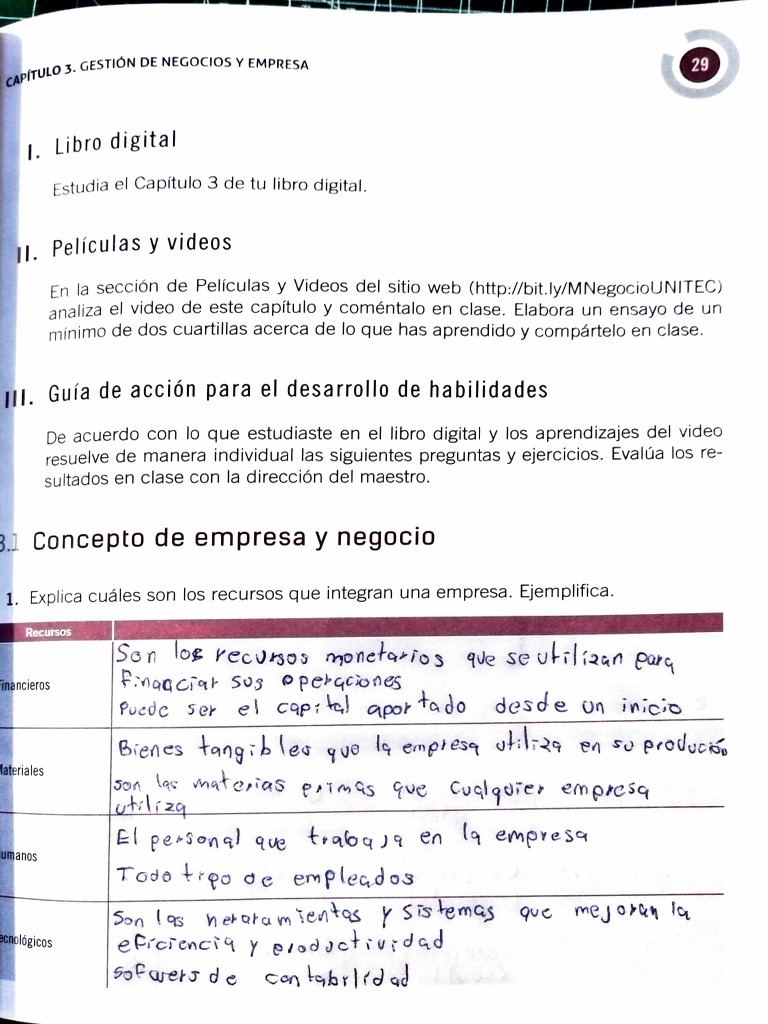 CAPÍTULO 3. GESTIÓN DE NEGOCIOS Y EMPRESA
29
I. Libro digital
Estudia el Capítulo 3 de tu libro digital.
II. Películas y videos
En la sección de Películas y Videos del sitio web (http://bit.ly/MNegocioUNITEC)
analiza el video de este capítulo y coméntalo en clase. Elabora un ensayo de un
mínimo de dos cuartillas acerca de lo que has aprendido y compártelo en clase.
III. Guía de acción para el desarrollo de habilidades
De acuerdo con lo que estudiaste en el libro digital y los aprendizajes del video
resuelve de manera individual las siguientes preguntas y ejercicios. Evalúa los re-
sultados en clase con la dirección del maestro.
3.1 Concepto de empresa y negocio
1. Explica cuáles son los recursos que integran una empresa. Ejemplifica.
Recursos
Son los recursos monetarios que se utilizan para
inancieros
financiar sus operaciones
Puede ser el capital aportado desde un inicio
Bienes tangibles que la empresa utiliza en su produción
ateriales
son las materias primas que cualquier empresa
utiliza
El personal que trabaja en la empresa
umanos
Todo tipo de empleados
Son las heraramientas y sistemas que mejoran la
ecnológicos
eficiencia y productividad
sofwers de contabilidad